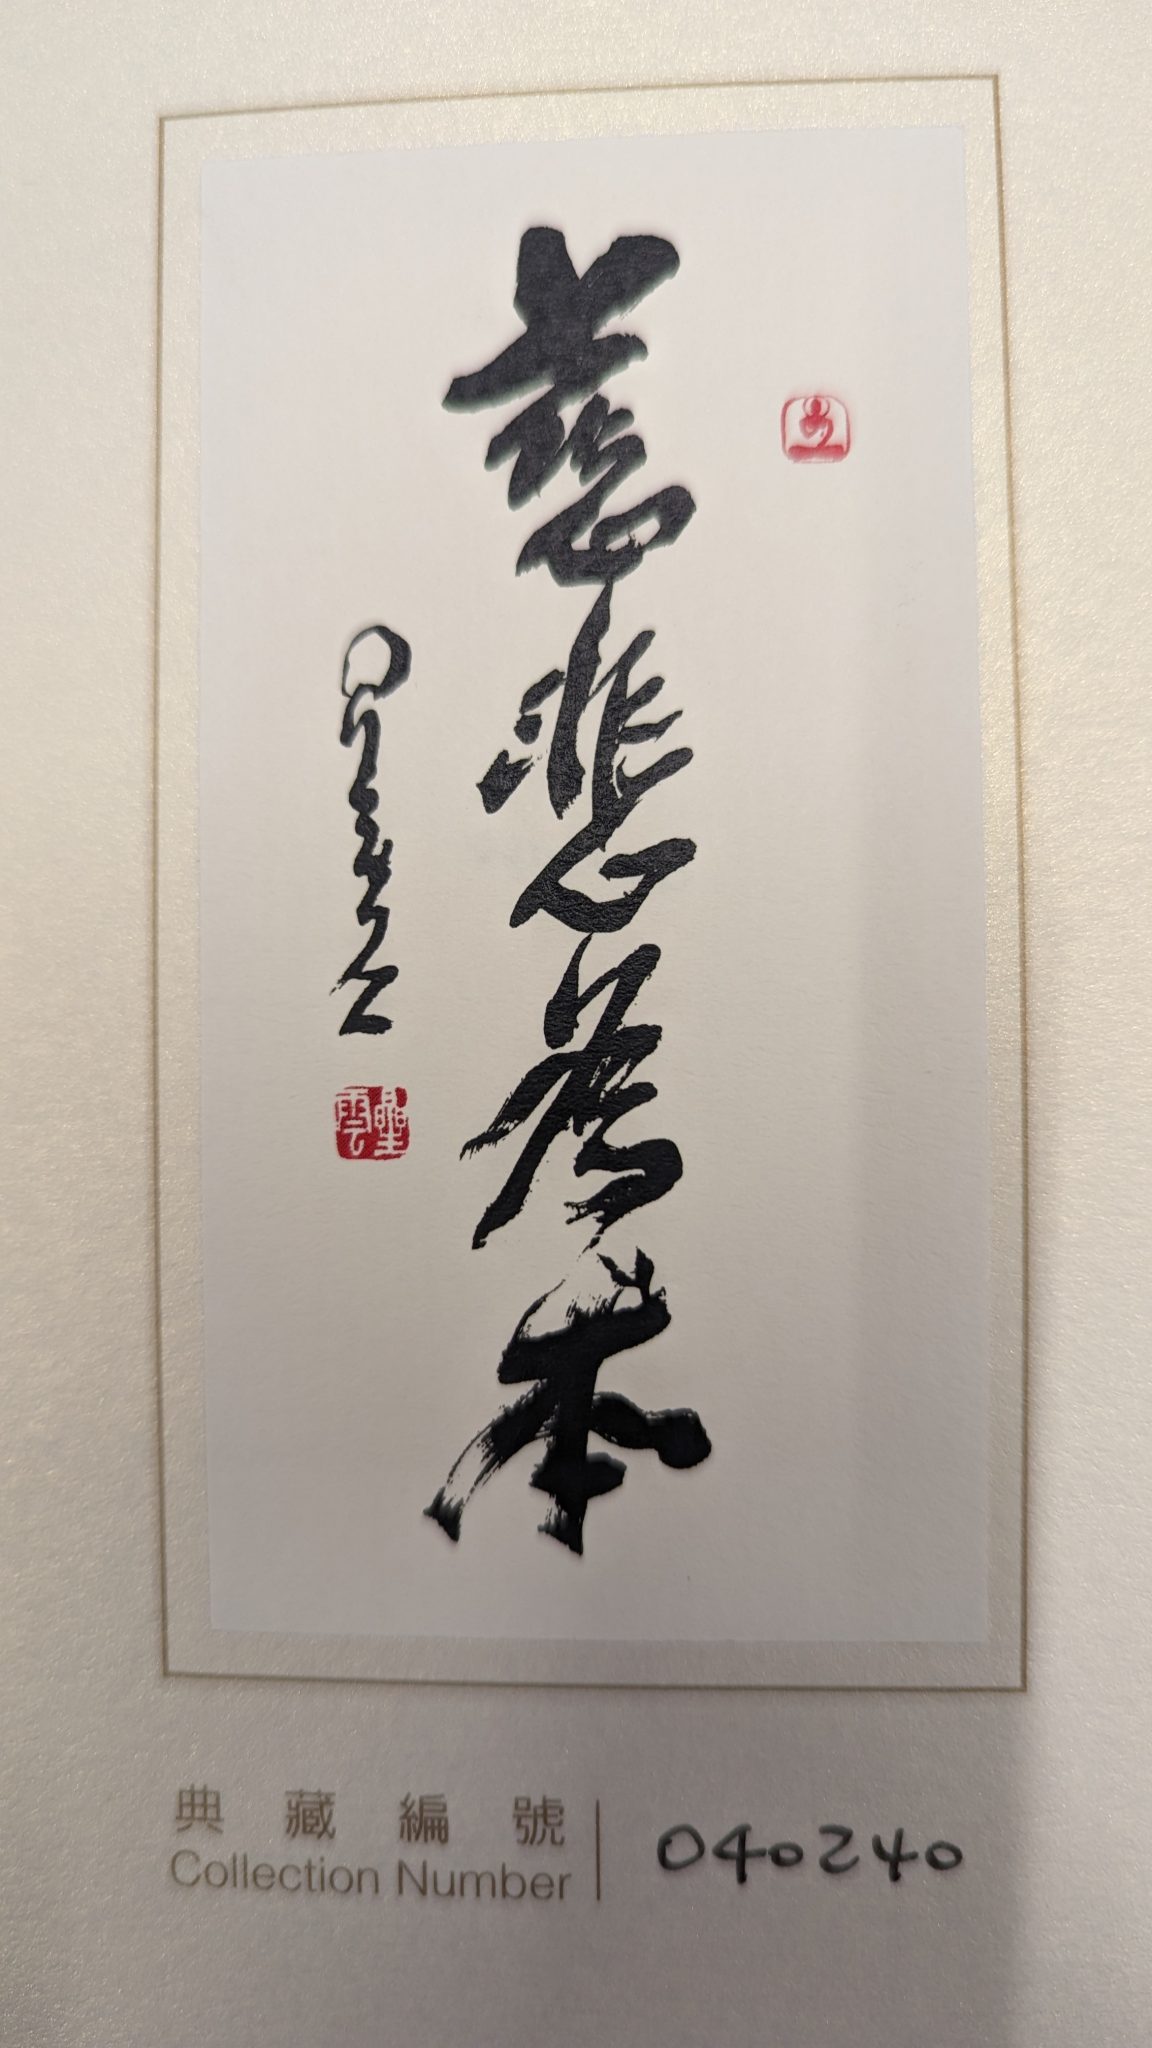 慈悲為本
星雲
星雲
典藏編號
Collection Number 040240